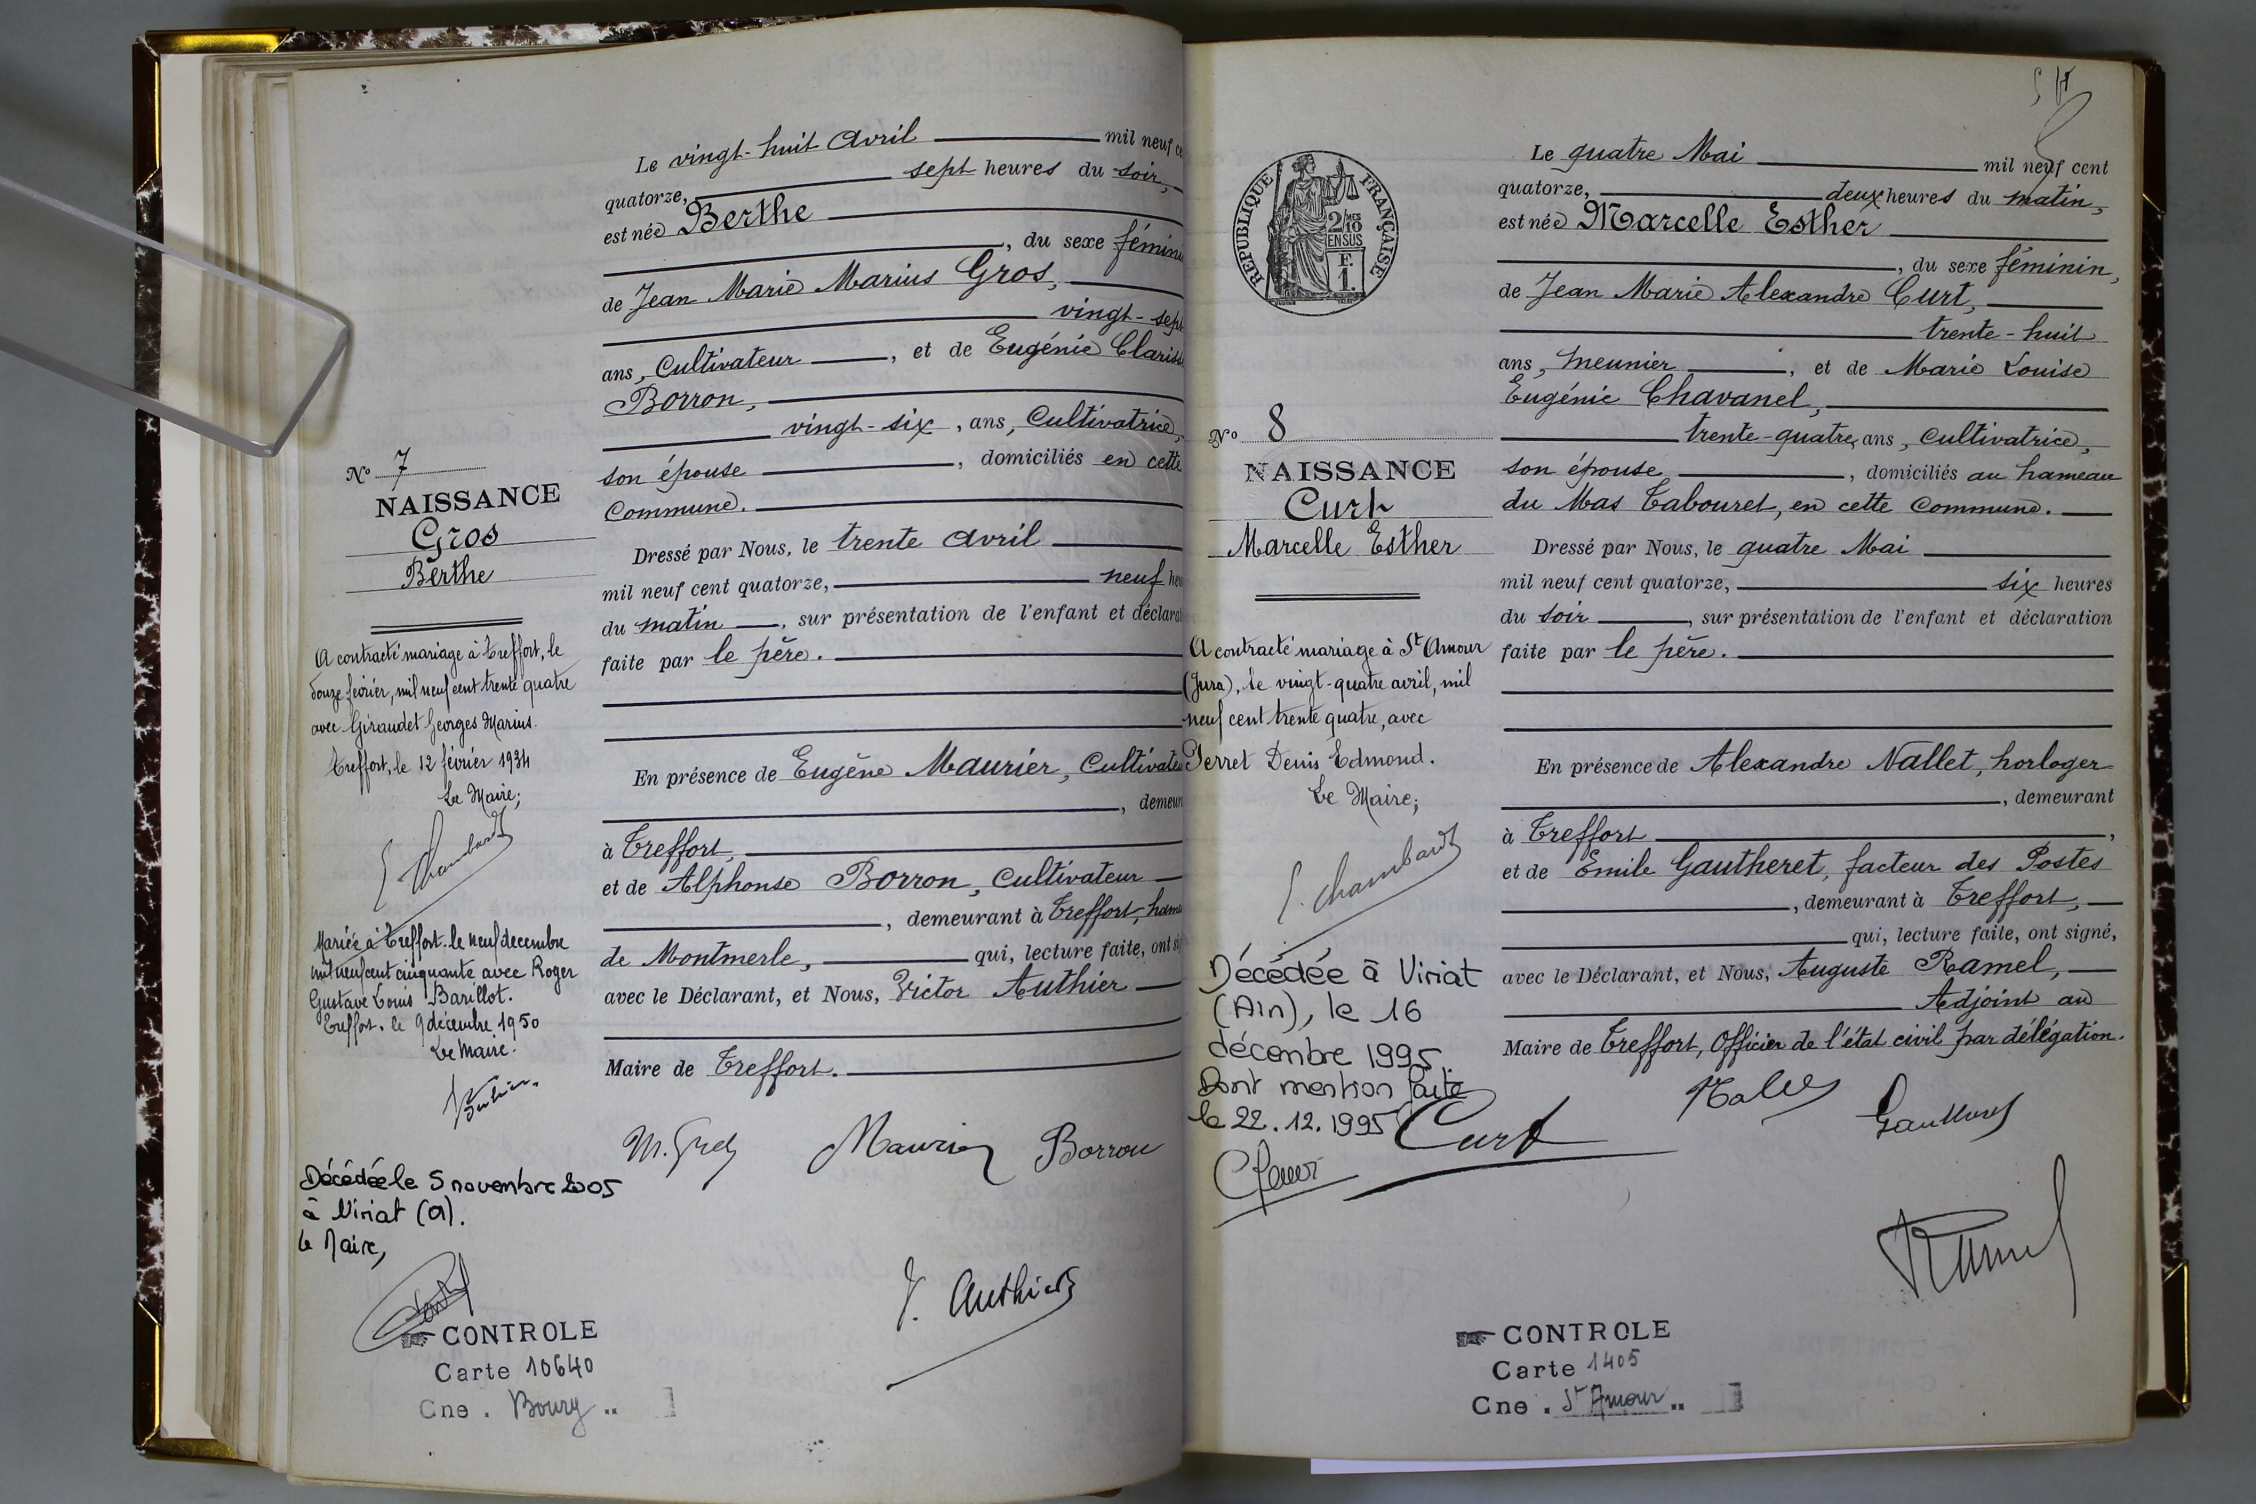 Le vingt-huit Avril mil neuf ce
quatorze, sept heures du soir,
est née Berthe
, du sexe fémini
de Jean Marie Marius Gros,
vingt-sept
ans, Cultivateur , et de Eugénie Clariss
Borron,
vingt-six , ans, Cultivatrice,
son épouse , domiciliés en cette
Commune.
Dressé par Nous, le trente Avril
mil neuf cent quatorze, neuf heu
du matin , sur présentation de l'enfant et déclarat
faite par le père.
En présence de Eugène Maurier, Cultivate
, demeur
à Treffort,
et de Alphonse Borron, Cultivateur
, demeurant à Treffort, hame
de Montmerle, qui, lecture faite, ont si
avec le Déclarant, et Nous, Victor Authier
Maire de Treffort.
M. Gros Maurier Borron
V. Authier
N° 7
NAISSANCE
Gros
Berthe
A contracté mariage à Treffort, le
douze février, mil neuf cent trente quatre
avec Giraudet Georges Marius.
Treffort, le 12 février 1934
Le Maire;
Chambard
Mariée à Treffort. le neuf decembre
mil neuf cent cinquante avec Roger
Gustave Louis Barillot.
Treffort. le 9 décembre 1950
Le Maire.
Décédée le 5 novembre 2005
à Viriat (01).
le Maire,
CONTROLE
Carte 10640
Cne . Bourg ..
5
RÉPUBLIQUE FRANÇAISE
2/10 MES
EN SUS
F.
1.
N° 8
NAISSANCE
Curt
Marcelle Esther
A contracté mariage à St Amour
(Jura), le vingt-quatre avril, mil
neuf cent trente quatre, avec
Perret Denis Edmond.
Le Maire;
Chambard
Décédée à Viriat
(Ain), le 16
décembre 1995
Dont mention faite
le 22.12.1995
Le quatre Mai mil neuf cent
quatorze, deux heures du matin,
est née Marcelle Esther
, du sexe féminin,
de Jean Marie Alexandre Curt,
trente-huit
ans, meunier , et de Marie Louise
Eugénie Chavanel,
trente-quatre, ans, Cultivatrice,
son épouse , domiciliés au hameau
du Mas Tabouret, en cette Commune.
Dressé par Nous, le quatre Mai
mil neuf cent quatorze, six heures
du soir , sur présentation de l'enfant et déclaration
faite par le père.
En présence de Alexandre Nallet, horloger
, demeurant
à Treffort ,
et de Emile Gautheret, facteur des Postes
, demeurant à Treffort,
qui, lecture faite, ont signé,
avec le Déclarant, et Nous, Auguste Ramel,
Adjoint au
Maire de Treffort, Officier de l'état civil par délégation.
Curt Nallet Gautheret
Ramel
CONTROLE
Carte 1405
Cne . St Amour ..